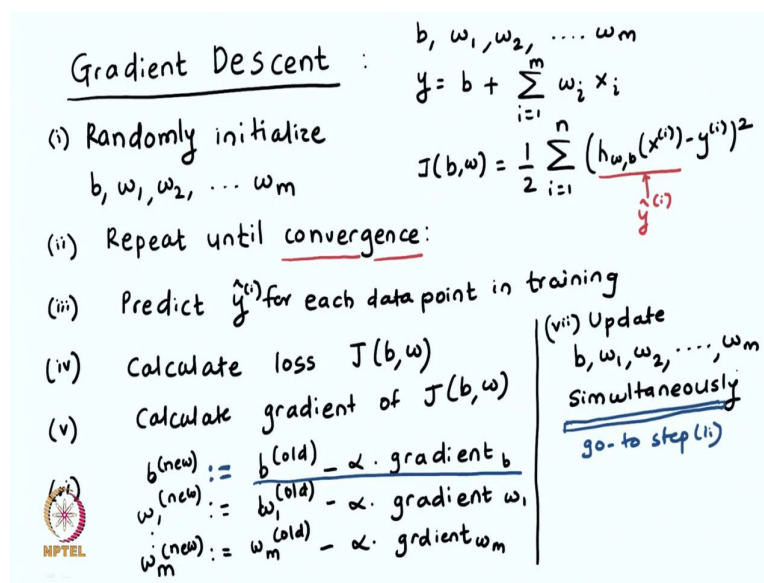 Gradient Descent :
b, ω₁, ω₂, .... ωm
y = b + Σ_{i=1}^{m} ωᵢ xᵢ
J(b,ω) = 1/2 Σ_{i=1}^{n} (h_{ω,b}(x^(i)) - y^(i))²
ŷ^(i)
(i) Randomly initialize
b, ω₁, ω₂, ... ωm
(ii) Repeat until convergence:
(iii) Predict ŷ^(i) for each data point in training
(iv) Calculate loss J(b,ω)
(v) Calculate gradient of J(b,ω)
b^(new) := b^(old) - α. gradient b
ω₁^(new) := ω₁^(old) - α. gradient ω₁
ωm^(new) := ωm^(old) - α. grdient ωm
(vii) Update
b, ω₁, ω₂, ...., ωm
Simultaneously
go-to step (ii)
NPTEL